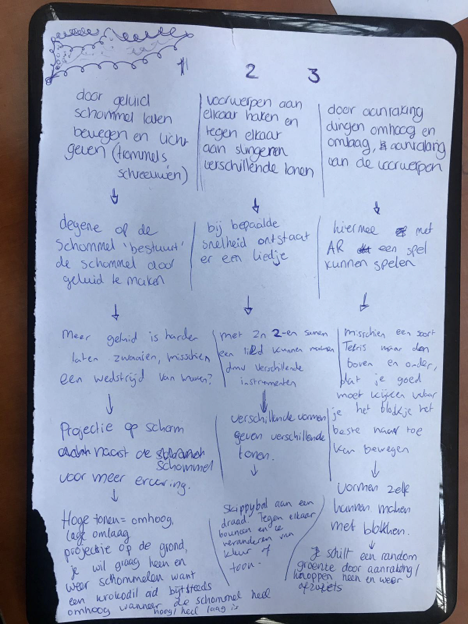 1
door geluid
schommel laten
bewegen en licht
geven (trommels
schreeuwen)
degene op de
schommel 'bestuurt'
de schommel door
geluid te maken
Meer geluid is harder
laten zwaaien, misschien
een wedstrijd van maken?
Projectie op scherm
naast de schommel
voor meer ervaring.
Hoge tonen = omhoog,
lage omlaag
projectie op de grond,
je wil graag heen en
weer schommelen want
een krokodil bijt steeds
omhoog wanneer de schommel heel
hoog/heel laag is
2
voorwerpen aan
elkaar haken en
tegen elkaar
aan slingeren
verschillende tonen
bij bepaalde
snelheid ontstaat
er een liedje
met zn 2-en samen
een lied kunnen maken
dmv verschillende
instrumenten
verschillende vormen
geven verschillende
tonen.
Skippybal aan een
draad, tegen elkaar
bouncen en ze
veranderen van
kleur of
toon.
3
door aanraking
dingen omhoog en
omlaag, aanraking
van de voorwerpen
hiermee met
AR een spel
kunnen spelen
misschien een soort
Tetris maar dan
boven en onder,
dat je goed
moet kijken waar
je het blokje het
beste naar toe
kan bewegen
vormen zelf
kunnen maken
met blokken.
Je schilt een random
groente door aanraking/
knoppen heen en weer